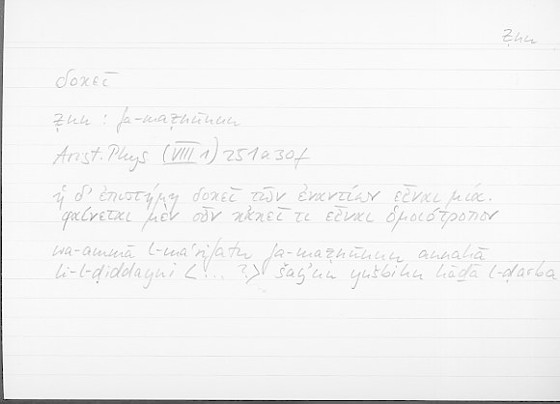 ẓnn
δοκεῖ
ẓnn : fa-maẓnūnun
Arist. Phys (VIII 1) 251a30f
ἡ δ' ἐπιστήμη δοκεῖ τῶν ἐναντίων εἶναι μία.
φαίνεται μὲν οὖν κἀκεῖ τι εἶναι ὁμοιότροπον
wa-ammā l-maʿrifatu fa-maẓnūnun annahā
li-l-ḍiddayni <... ?> šayʾun yušbihu hāḏā l-ḍarba